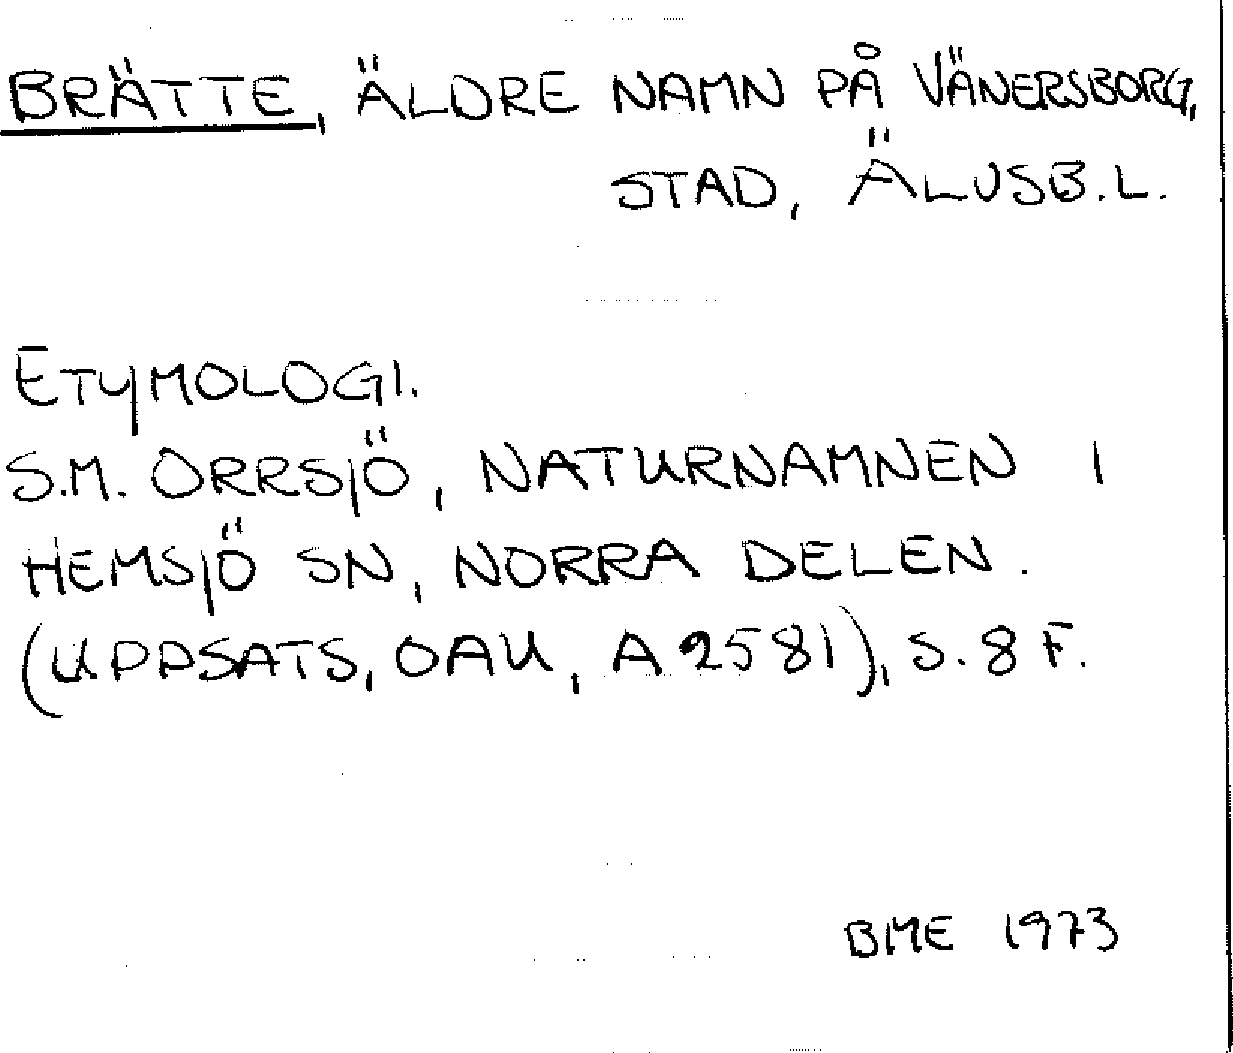 BRÄTTE, ÄLDRE NAMN PÅ VÄNERSBORG,
STAD, ÄLVSB.L.
ETYMOLOGI.
S.M. ORRSJÖ, NATURNAMNEN I
HEMSJÖ SN, NORRA DELEN.
(UPPSATS, OAU, A 2581), S. 8 F.
BME 1973